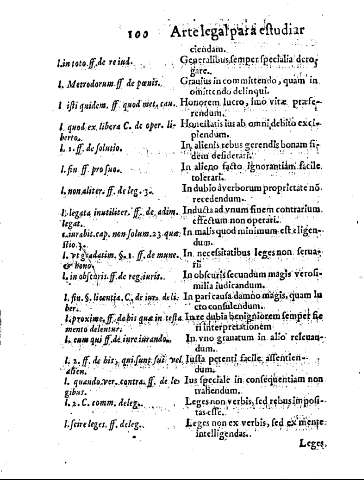 100 Arte legal para estudiar
ciendam.
l. in toto ff. de re iud. Generalibus semper specialia dero-
gare.
l. Metrodorum. ff de pœnis. Grauius in committendo, quam in
omittendo delinqui.
l isti quidem. ff. quod met. cau. Honorem lucro, imo vitæ præfe-
rendum.
l. quod ex libera C. de oper. li- Honestatis ius ab omni debito exci-
berto. piendum.
l. 1. ff. de solutio. In alienis rebus gerendis bonam fi-
dem desiderari.
l. fin ff pro suo. In alieno facto ignorantiam facile
tolerari.
l. non aliter. ff. de leg. 3. In dubio à verborum proprietate nō
recedendum.
l. legata inutiliter. ff. de adim. Inducta ad vnum finem contrarium
legat. effectum non operari.
c. iurabit. cap. non solum. 23. quæ In malis quod minimum est eligen-
stio. 3. dum.
l. vt gradatim. §. 1. ff. de mune. In necessitatibus leges non serua-
& hono. ri
l. in obscuris. ff. de reg. iuris. In obscuris secundum magis verosi-
milia iudicandum.
l. fin. §. licentia. C. de iure deli- In pari causa damno magis, quam lu
ber. cro consulendum.
l. proxime. ff. de his quæ in testa In re dubia benigniorem semper fie
mento delentur. ri interpretationem
l. eum qui ff. de iure iurando. In vno grauatum in alio releuan-
dum.
l. 2. ff. de his, qui sunt sui vel Iusta petenti facile assentien-
alien. dum.
l. quando ver. contra. ff. de le- Ius speciale in consequentiam non
gibus. trahendum.
l. 2. C. comm. deleg. Leges non verbis, sed rebus imposi-
tas esse.
l. scire leges. ff. de leg. Leges non ex verbis, sed ex mente
intelligendas.
Leges.